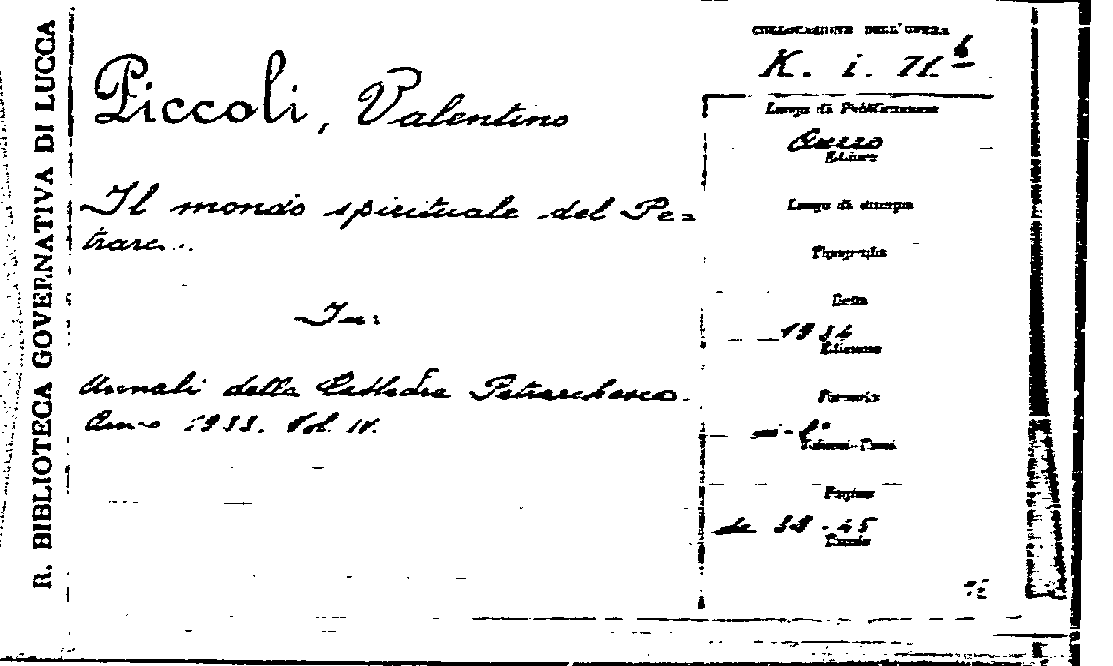 R. BIBLIOTECA GOVERNATIVA DI LUCCA
COLLOCAZIONE DELL'OPERA
K. i. 71.
Piccoli, Valentino
Il mondo spirituale del Pe=
trarc...
In:
Annali della Cattedra Petrarchesca.
Anno 1933. Vol. IV.
Luogo di Pubblicazione
Editore
Luogo di stampa
Tipografia
Data
1934
Edizione
Formato
in-8°
Volumi-Tomi
Pagine
da 38-45